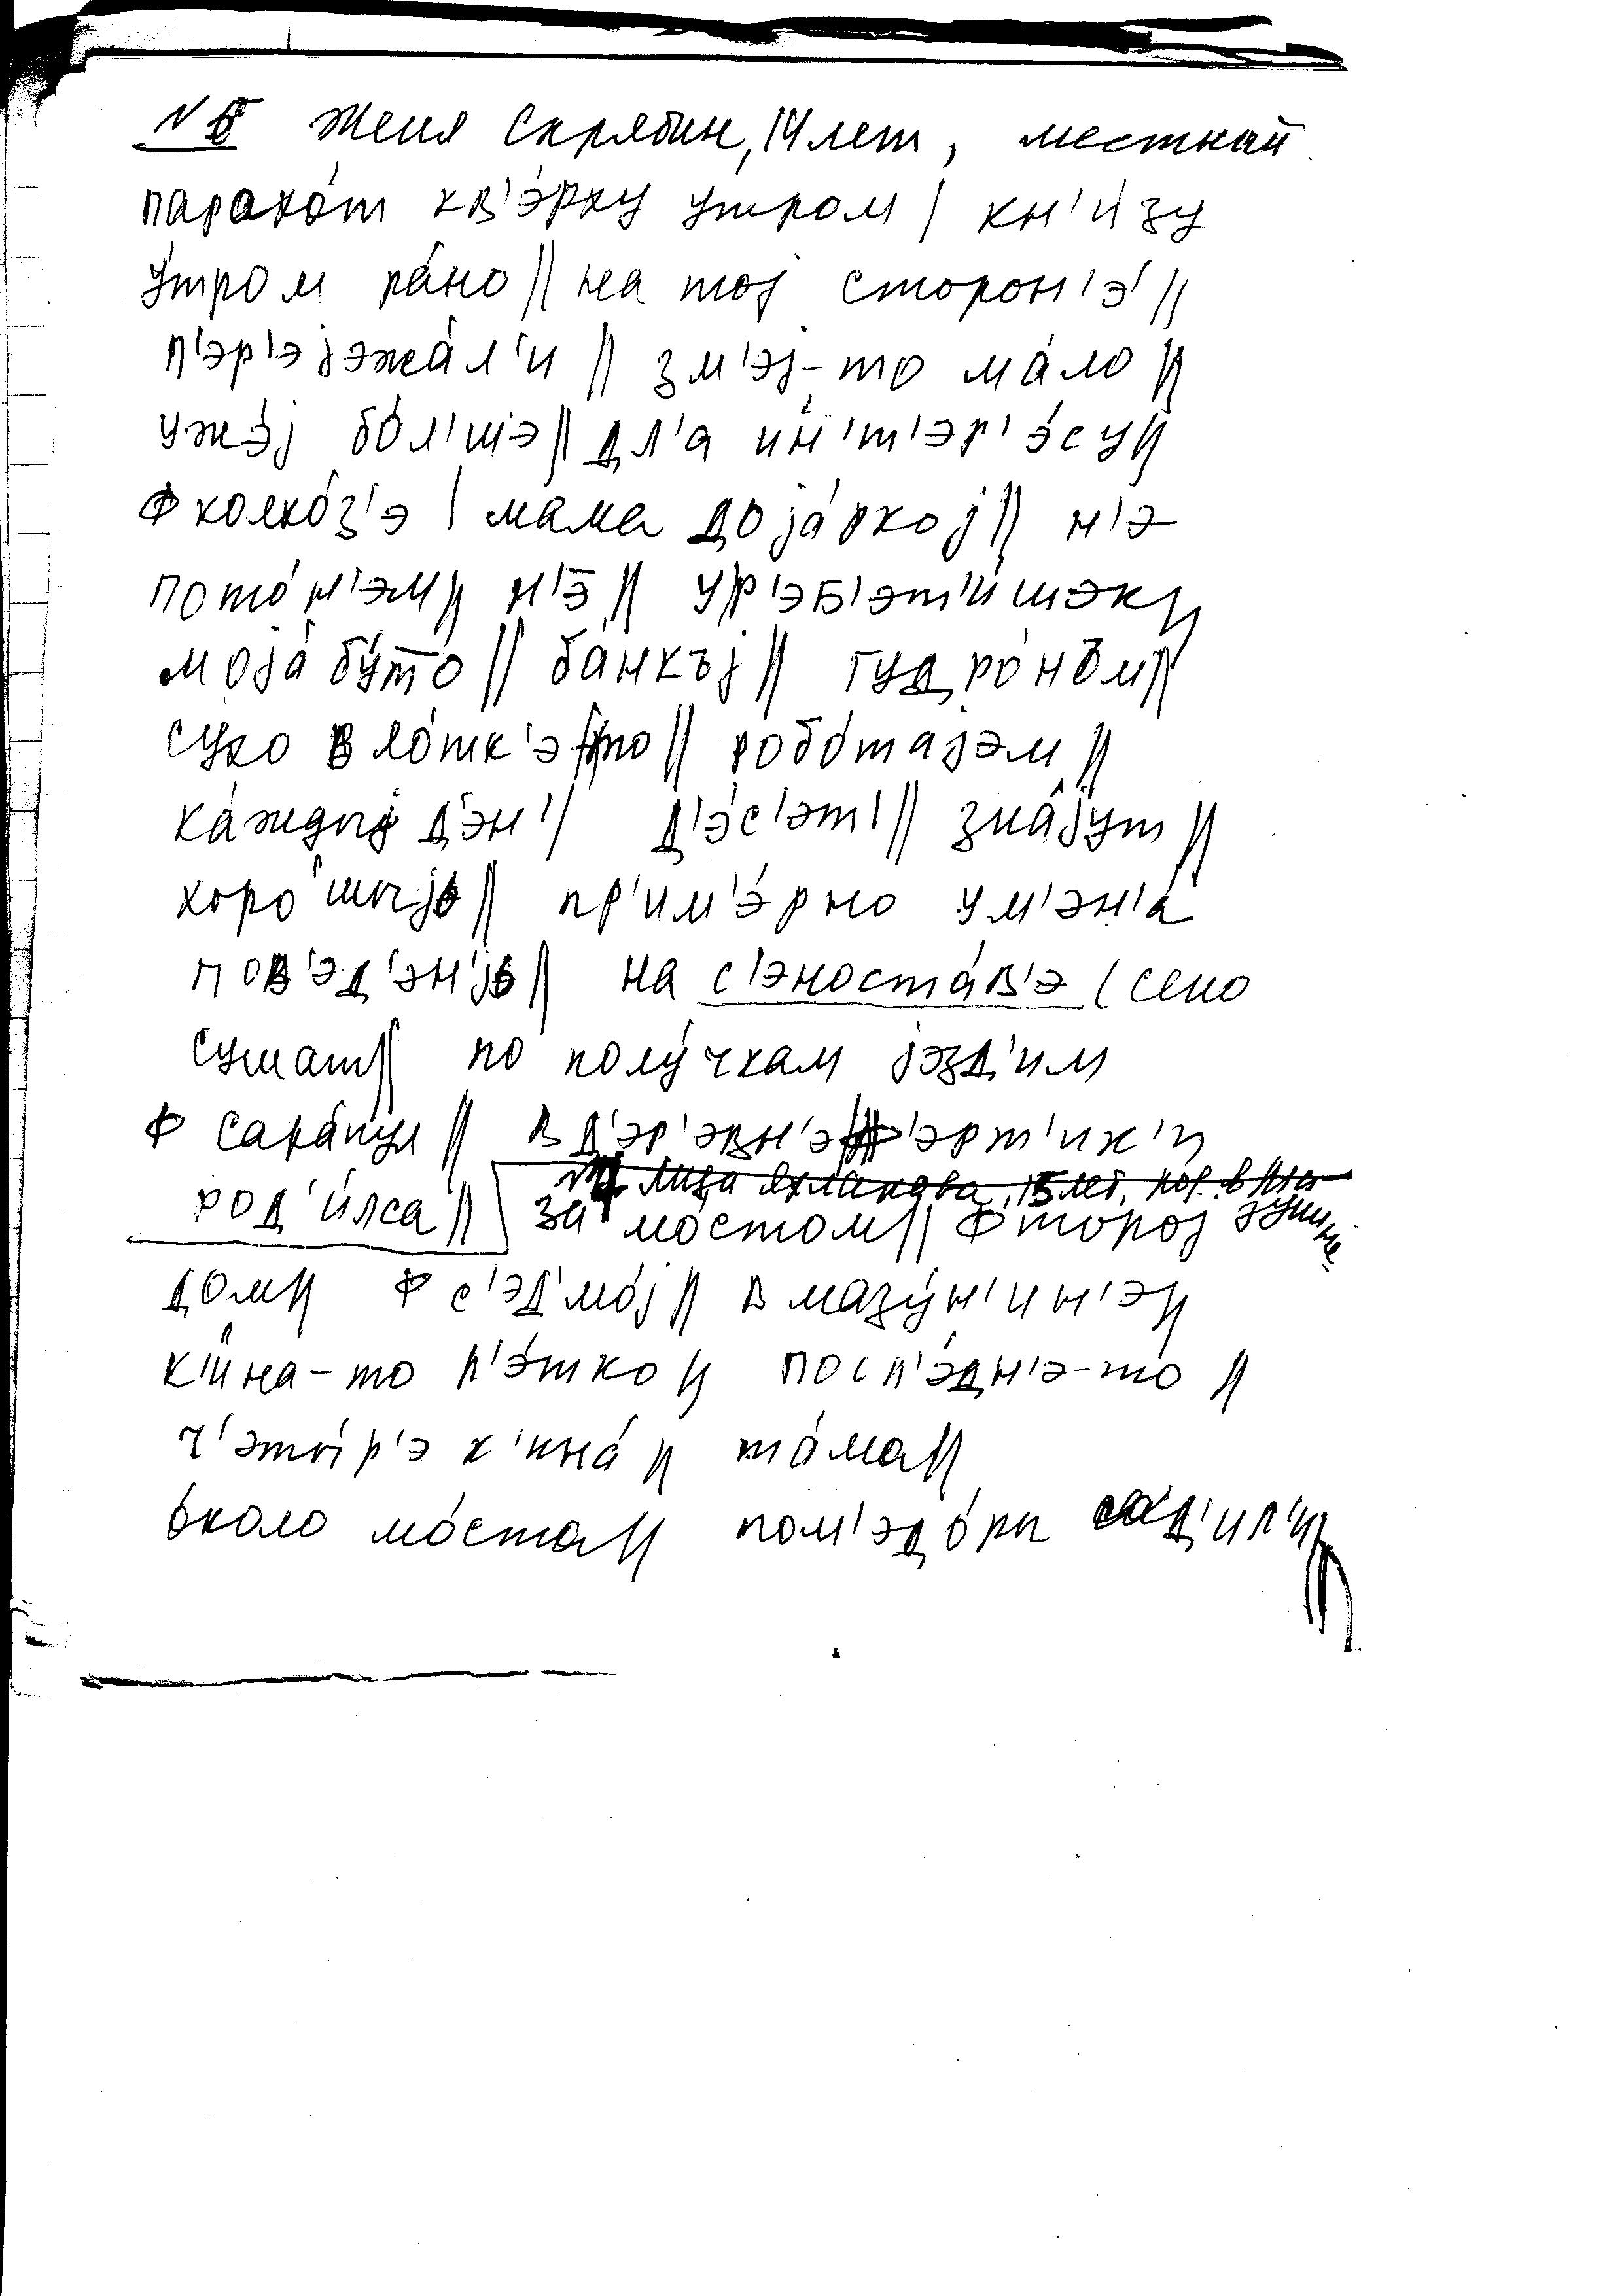 N 6 Женя Скрябин, 14 лет, местный
парахо́т кв'э́рху утром | кн'и́зу
у́тром ра́но || на тој сторон'э́ ||
п'эр'эјэжа́л'и || зм'эј-то ма́ло ||
ужэ́ј бо́л'шэ || дл'а ин'т'эр'э́су ||
ф колхо́з'э | мама доја́ркој || н'э
пото́н'эм || н'э || ур'эб'эт'и́шэк ||
моја́ бу́то || ба́нкъј || гудро́ном ||
сухо в ло́тк'э то || робо́тајэм ||
ка́ждыј д'эн' | д'э́с'эт' || зна́јут ||
хоро́шыјь || пр'им'э́рно ум'эн'а́
пов'эд'э́н'јь || на с'эноста́в'э (сено
сушат || по полу́чкам јэзд'им
ф сара́пул || в д'эр'эвн'э п'эрт'ик'и
род'и́лса || за мо́стом || фторој
дом || ф с'эд'мо́ј || в мазу́н'ин'э ||
к'и́на-то л'э́тко || посл'э́дн'э-то ||
ч'эты́р'э к'ина́ || та́ма ||
о́коло мо́ста || пом'эдо́ры сад'ил'и ||